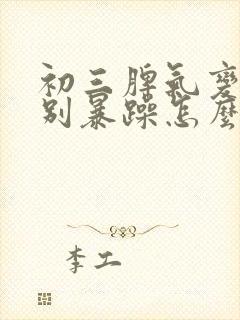 初三脾氣變
别暴躁怎麽
李工